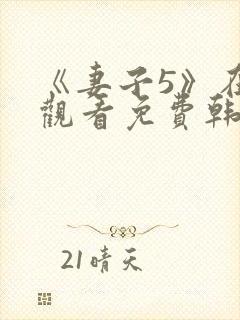 《妻子5》在
觀看免費韓
21晴天